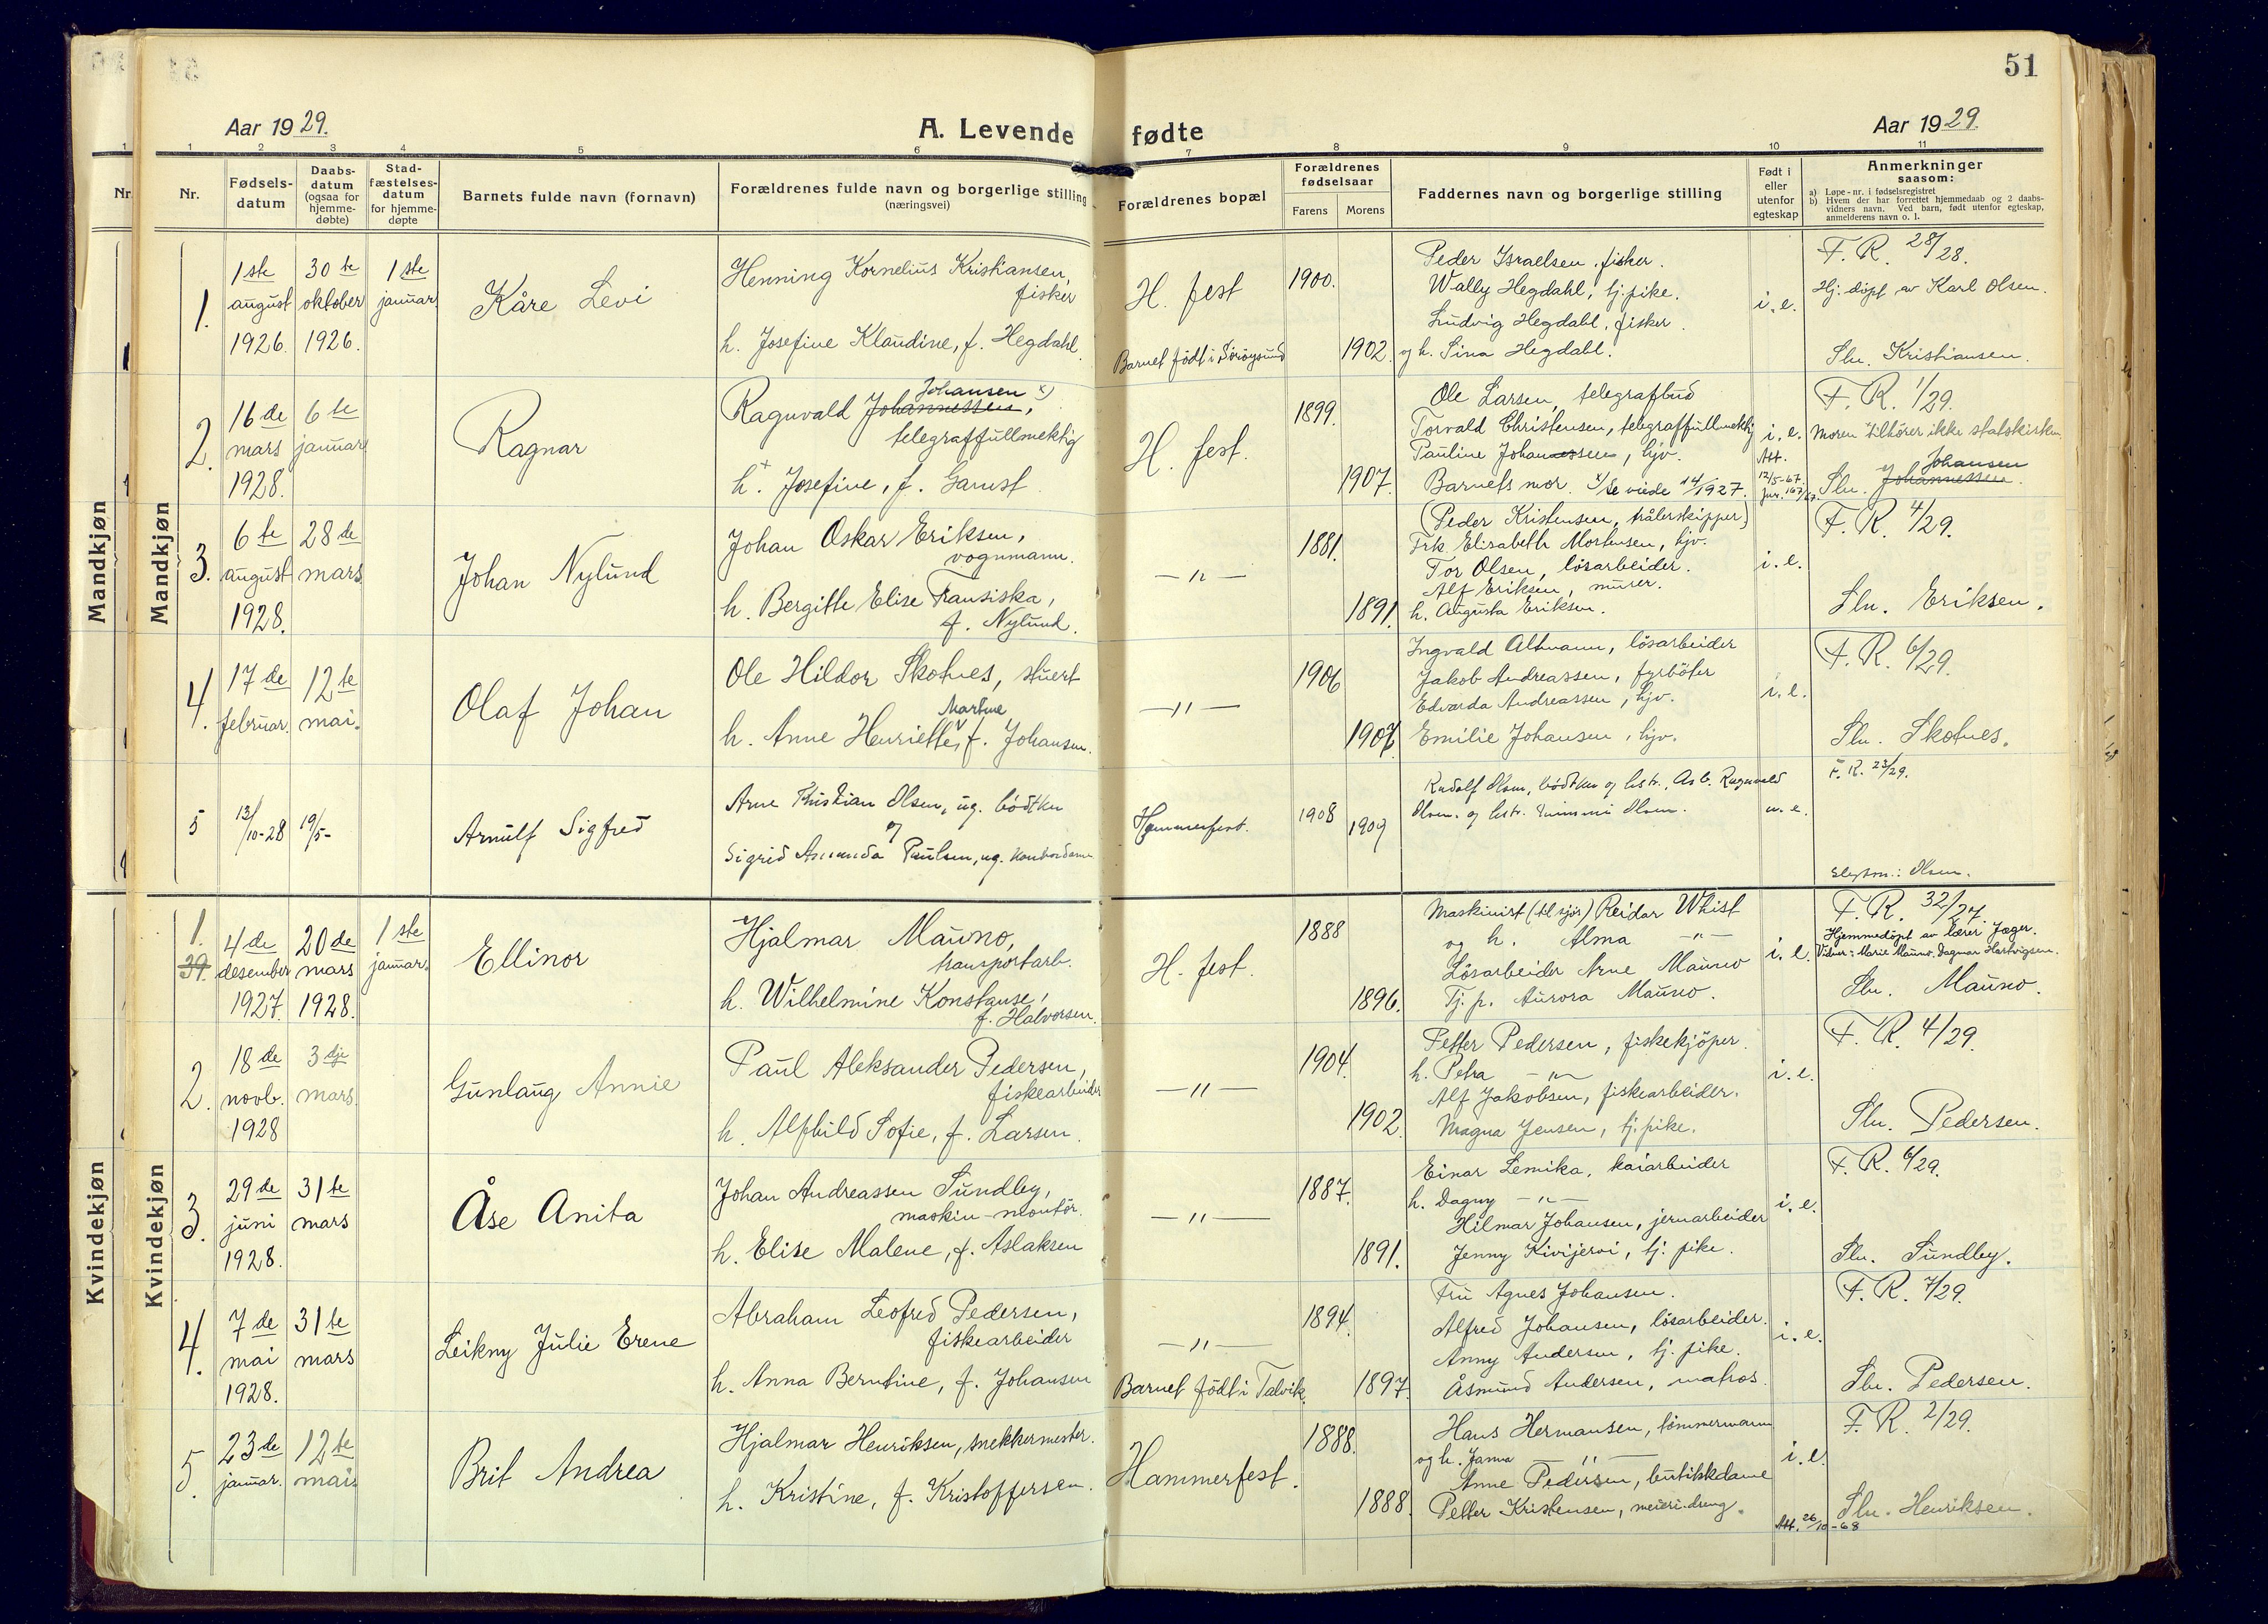 51
Aar 1929.
A. Levende fødte
Aar 1929.
1 2 3 4 5 6 7 8 9 10 11
Nr.
Nr.
Fødsels-datum
Daabs-datum (ogsaa for hjemme-døbte)
Stad-fæstelses-datum for hjemme-døpte
Barnets fulde navn (fornavn)
Forældrenes fulde navn og borgerlige stilling (næringsvei)
Forældrenes bopæl
Forældrenes fødselsaar
Farens
Morens
Faddernes navn og borgerlige stilling
Født i eller utenfor egteskap
Anmerkninger saasom:
a) Løpe-nr. i fødselsregistret
b) Hvem der har forrettet hjemmedaab og 2 daabs-vidners navn. Ved barn, født utenfor egteskap, anmelderens navn o. l.
Mandkjøn
Mandkjøn
1.
1ste august 1926.
30te oktober 1926.
1ste januar
Kåre Levi
Henning Kornelius Kristiansen,
fisker
h. Josefine Klaudine, f. Hegdahl
H. fest
Barnet født i Sørøysund
1900.
1902.
Peder Israelsen, fisker.
Wally Hegdahl, tj.pike.
Ludvig Hegdahl, fisker.
og h. Sina Hegdahl.
i. e.
F. R. 28/28.
Hj. døpt av Karl Olsen.
Sln. Kristiansen.
2.
16de mars 1928.
6te januar
Ragnar
Johansen x)
Ragnvald Johannessen,
telegraffullmektig
h.+ Josefine, f. Garnst
H. fest.
1899.
1907.
Ole Larsen, telegrafbud
Torvald Christensen, telegraffullmektig
Pauline Johannessen, hjv.
Barnets mor. x/ Se viede 14/1927.
i. e.
Att.
12/5-67.
Jnr. 167/67.
F. R. 1/29.
Moren tilhører ikke statskirken.
Johansen
Sln. Johannessen.
3.
6te august 1928.
28de mars
Johan Nylund
Johan Oskar Eriksen,
vognmann.
h. Bergitte Elise Fransiska,
f. Nylund.
— " —
1881.
1891.
(Peder Kristensen, trålerskipper)
Frk. Elisabeth Mortensen, hjv.
Tor Olsen, løsarbeider.
Alf Eriksen, murer.
h. Augusta Eriksen.
i. e.
F. R. 4/29.
Sln. Eriksen.
4.
17de februar.
12te mai.
Olaf Johan
Ole Hildor Skotnes, stuert
Martine
h. Anne Henriette, f. Johansen.
— " —
1906
1907
Ingvald Altmann, løsarbeider
Jakob Andreassen, fyrbøter
Edvarda Andreassen, hjv.
Emilie Johansen, hjv.
i. e.
F. R. 6/29.
Sln. Skotnes.
5
13/10-28
19/5-
Arnulf Sigfred
Arne Kristian Olsen, ug. bødtker
og
Sigrid Amanda Paulsen, ug. kontordame
Hammerfest.
1908
1909
Rudolf Olsen, bødtker og hstr., Asb. Ragnvald
Olsen. og hstr. Olsen.
u. e.
F. R. 23/29.
Slegtsn.: Olsen.
Kvindekjøn
Kvindekjøn
1.
39.
4de desember 1927.
20de mars 1928.
1ste januar.
Ellinor
Hjalmar Mauno,
transportarb.
h. Wilhelmine Konstanse,
f. Halvorsen.
H. fest.
1888
1896.
Maskinist (til sjøs) Reidar Whist
og h. Alma — " —
Løsarbeider Arne Mauno
Tj. p. Aurora Mauno.
i. e.
F. R. 32/27.
Hjemmedøpt av lærer Jæger.
Vidner: Marie Mauno, Dagmar Hartvigsen.
Sln. Mauno.
2.
18de novb. 1928
3dje mars.
Gunlaug Annie
Paul Aleksander Pedersen,
fiskearbeider
h. Alfhild Sofie, f. Larsen.
— " —
1904.
1902.
Petter Pedersen, fiskekjøper.
h. Petra — " —
Alf Jakobsen, fiskearbeider.
Magna Jensen, tj.pike.
i. e.
F. R. 4/29.
Sln. Pedersen.
3.
29de juni 1928.
31te mars
Åse Anita
Johan Andreassen Sundby,
maskin-montør.
h. Elise Malene, f. Aslaksen
— " —
1887.
1891.
Einar Lemika, kaiarbeider
h. Dagny — " —
Hilmar Johansen, jernarbeider
Jenny Kivijervi, tj. pike.
i. e.
F. R. 6/29.
Sln. Sundby.
4.
7de mai 1928.
31te mars
Leikny Julie Erene
Abraham Leofred Pedersen,
fiskearbeider
h. Anna Berntine, f. Johansen
— " —
Barnet født i Talvik.
1894.
1897.
Fru Agnes Johansen.
Alfred Johansen, løsarbeider.
Anny Andersen, tj. pike.
Åsmund Andersen, matros.
i. e.
F. R. 7/29.
Sln. Pedersen.
5.
23de januar.
12te mai
Brit Andrea
Hjalmar Henriksen, snekkermester.
h. Kristine, f. Kristoffersen.
Hammerfest.
1888.
1888.
Hans Hermansen, tømmermann
og h. Janna — " —
Anne Pedersen, butikkdame
Petter Kristensen, meieridreng.
i. e.
Att. 26/10-68
F. R. 2/29.
Sln. Henriksen.